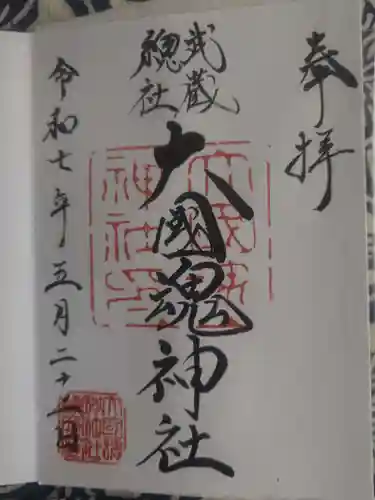 奉拝
武蔵
總社
大國魂神社
令和七年五月二十二日